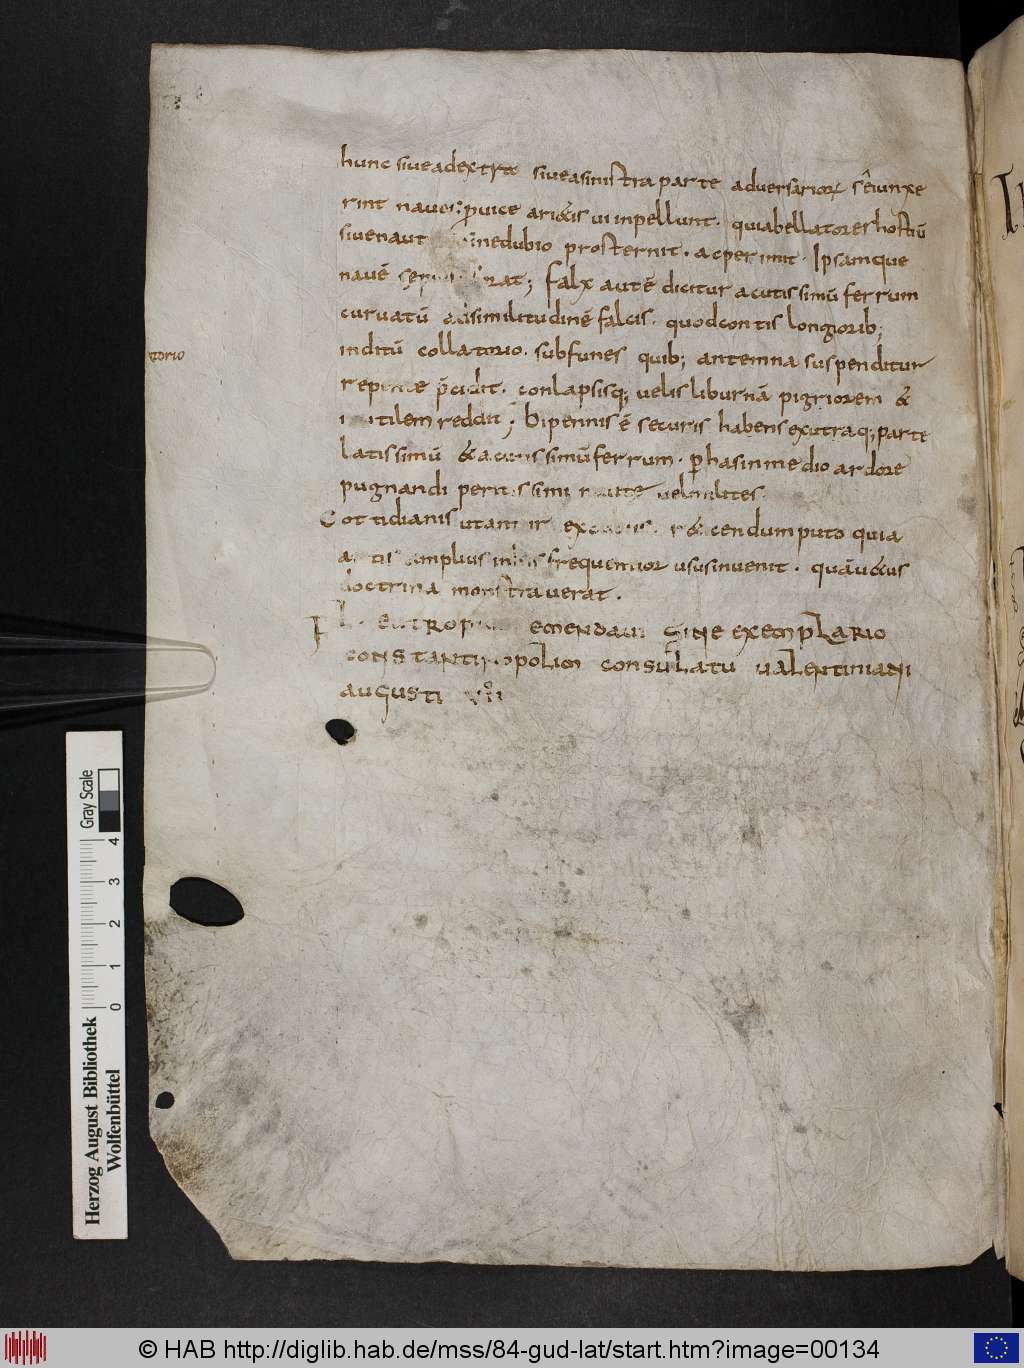 hunc siue adextra siue asinistra parte aduersarioꝝ sēiunxe
rint naues ꝓ uice ari&is ui inpellunt · quia bellatores hostiū
siue naut inedubio prosternit · ac perimit · Ipsamque
nauē rat; Falx autē dicitur acutissimū ferrum
curuatū adsimilitudinē falcis · quod contis longiorib;
inditū collatorio · subfunes quib; antemna suspenditur
repente p̄cidit · conlapsisq; uelis liburnā pigriorem &
inutilem reddit; Bipennis ē securis habens ex utraq; parte
latissimū & acutissimū ferrum · ꝑ has in medio ardore
pugnandi peritissimi naute uel milites
Cottidianis r&icendum puto quia
amplius in his frequentior usus inuenit · quā u&us
doctrina monstrauerat ·
FL · EUTROPIUS EMENDAUI SINE EXEMPLARIO
CONSTANTINOPOLIM CONSULATU UALENTINIANI
AUGUSTI
torio
Gray Scale
4
3
2
1
0
Herzog August Bibliothek
Wolfenbüttel
© HAB http://diglib.hab.de/mss/84-gud-lat/start.htm?image=00134